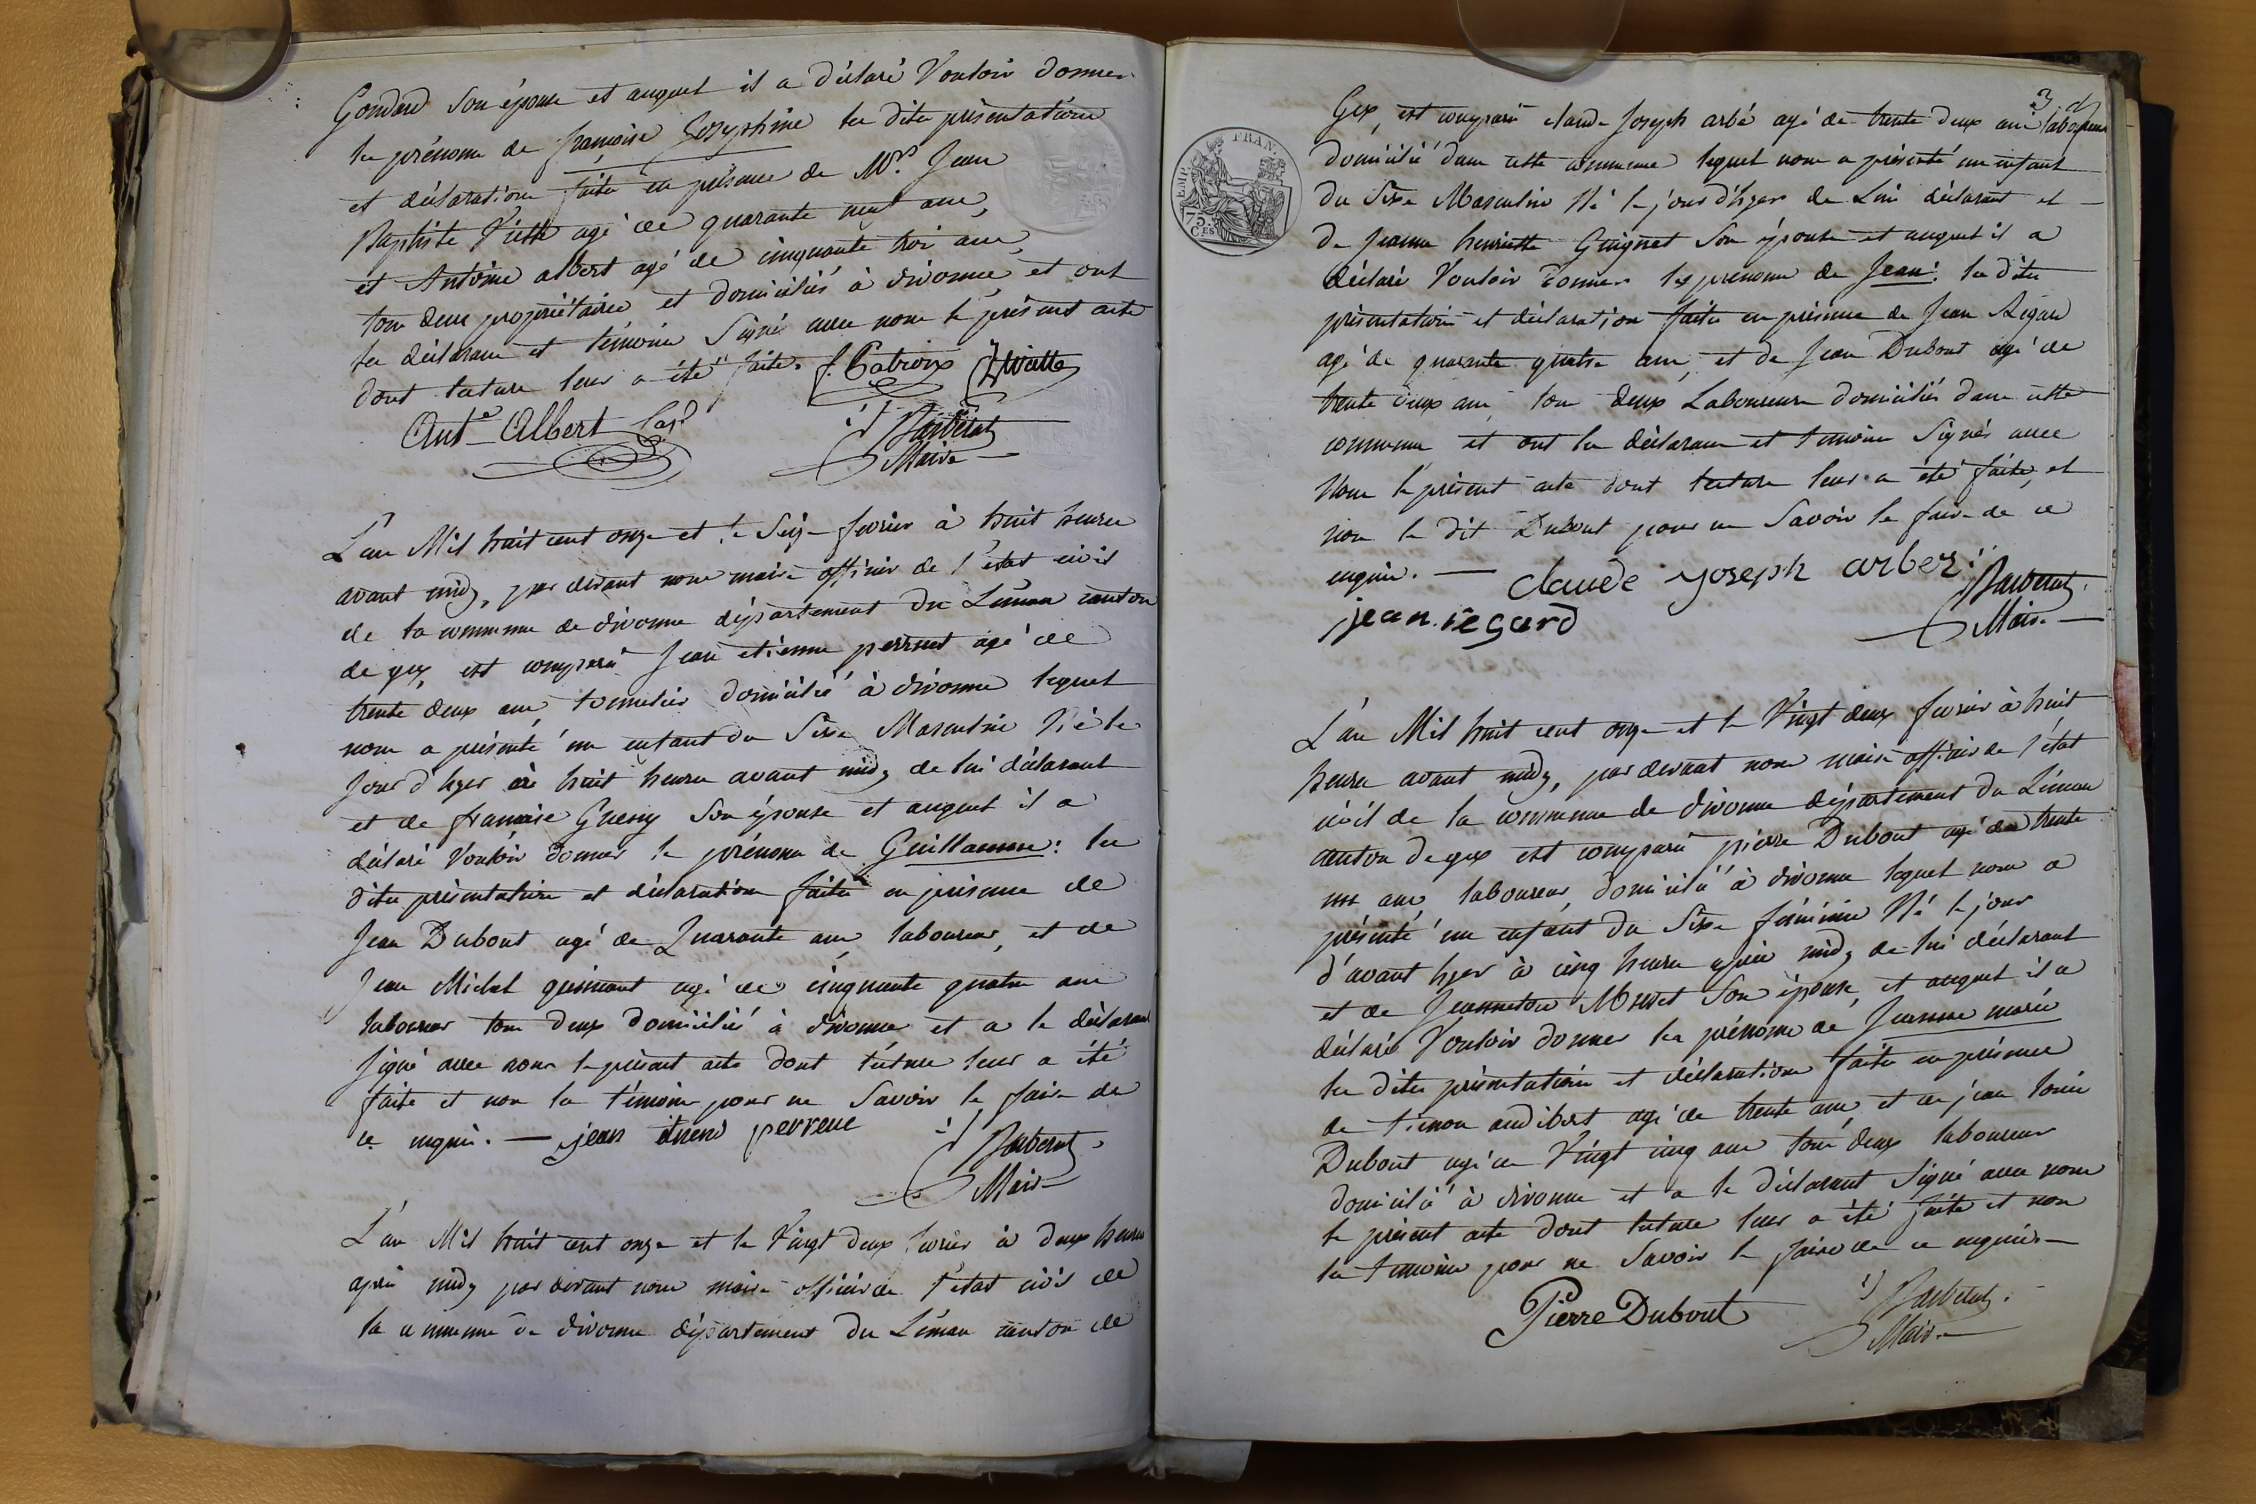 Gondard son épouse et auquel il a déclaré Vouloir donner
les prénoms de françoise Josephine les dites présentation
et déclaration faite en présence de Mrs. Jean
Baptiste Viette agé de quarante neuf ans,
et Antoine albert agé de cinquante troi ans,
tous deux propriétaires et domiciliés à divonne, et ont
les déclarans et témoins Signés avec nous le présent acte
dont lecture leur a été faite. f. Patroix JBViette
Ante Albert Barberat
Maire
L'an Mil huit cent onze et le Seize fevrier à huit heures
avant midy, par devant nous maire officier de l'état civil
de la commune de divonne département du Léman canton
de gex, est comparu Jean etienne perrret agé de
trente deux ans, tonnelier domicilié à divonne lequel
nous a présenté un enfant du Sexe Masculin Né le
Jour d'hyer à huit heures avant midy de lui déclarant
et de francoise Gresny Son épouse et auquel il a
déclaré Vouloir donner le prénom de Guillaume: les
dites présentation et déclaration faite en présence de
Jean Dubout agé de Quarante ans, laboureur, et de
Jean Michel agé de cinquante quatre ans
laboureur tous deux domicilié à divonne et a le déclarant
Signé avec nous le présent acte dont lecture leur a été
faite et non les témoins pour ne Savoir le faire de
ce requis. — jean etiene perrene Barberat
Maire
L'an Mil huit cent onze et le Vingt deux fevrier à deux heures
après midy par devant nous maire officier de l'état civil de
la commune de divonne département du Léman canton de
3
EMP. FRAN.
75 CES
Gex, est comparu claude Joseph arbé agé de trente deux ans laboureur
domicilié dans cette commune lequel nous a présenté un enfant
du Sexe Masculin Né le jour d'hyer de Lui déclarant et
de Jeanne henriette Guignet Son épouse et auquel il a
déclaré Vouloir donner les prenoms de Jean: les dites
présentation et déclaration faite en présence de Jean Regard
agé de quarante quatre ans, et de Jean Dubout agé de
trente deux ans, tous deux Laboureurs domiciliés dans cette
commune et ont les déclarans et temoins Signés avec
Nous le présent acte dont lecture leur a été faite, et
non le dit Dubout pour ne Savoir le faire de ce
requis. — claude joseph arbez Barberat
jean regard Maire
L'an Mil huit cent onze et le Vingt deux fevrier à huit
heures avant midy, par devant nous maire officier de l'état
civil de la commune de divonne département du Léman
canton de gex est comparu pierre Dubout agé de trente
un ans laboureur, domicilié à divonne lequel nous a
présenté un enfant du Sexe féminin Né le jour
d'avant hyer à cinq heures après midy de lui déclarant
et de Jeanneton Musset Son épouse, et auquel il a
déclaré Vouloir donner les prénoms de Jeanne marie
les dites présentation et déclaration faite en présence
de audibert agé de trente ans, et de jean louis
Dubout agé de Vingt cinq ans tous deux laboureurs
domicilié à divonne et a le déclarant Signé avec nous
le présent acte dont lecture leur a été faite et non
les temoins pour ne Savoir le faire de ce requis. —
Pierre Dubout Barberat
Maire